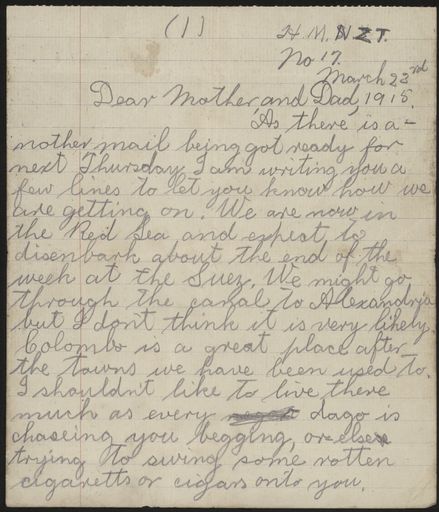 (1) H.M.N.Z.T.
No 17.
March 23rd
Dear Mother and Dad, 1915.
As there is a-
nother mail being got ready for
next Thursday I am writing you a
few lines to let you know how we
are getting on. We are now in
the Red Sea and expect to
disenbark about the end of the
week at the Suez. We might go
through the canal to Alexandria
but I don't think it is very likely.
Colombo is a great place after
the towns we have been used to.
I shouldn't like to live there
much as every dago is
chaseing you begging, or else
trying to swing some rotten
cigaretts or cigars onto you.